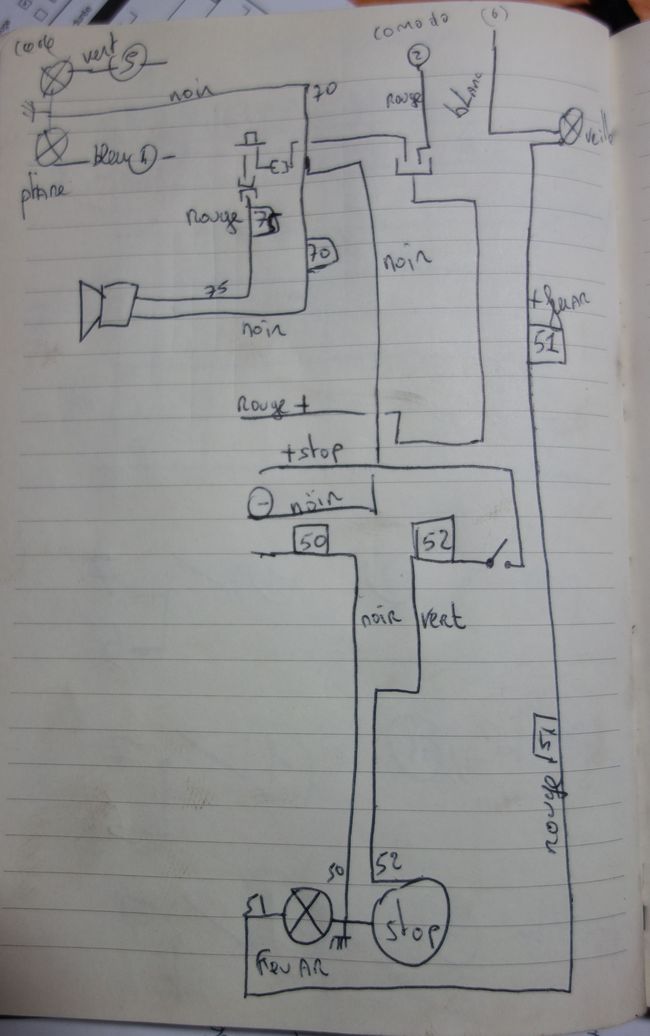 code
vert 5
comodo
(6)
2
noir
70
Rouge
bLAnc
veille
phare
bleu
Rouge
75
70
noir
+ feu AR
75
noir
51
Rouge +
+ stop
- noir
50
52
noir
vert
51
rouge
50
52
51
stop
Feu AR